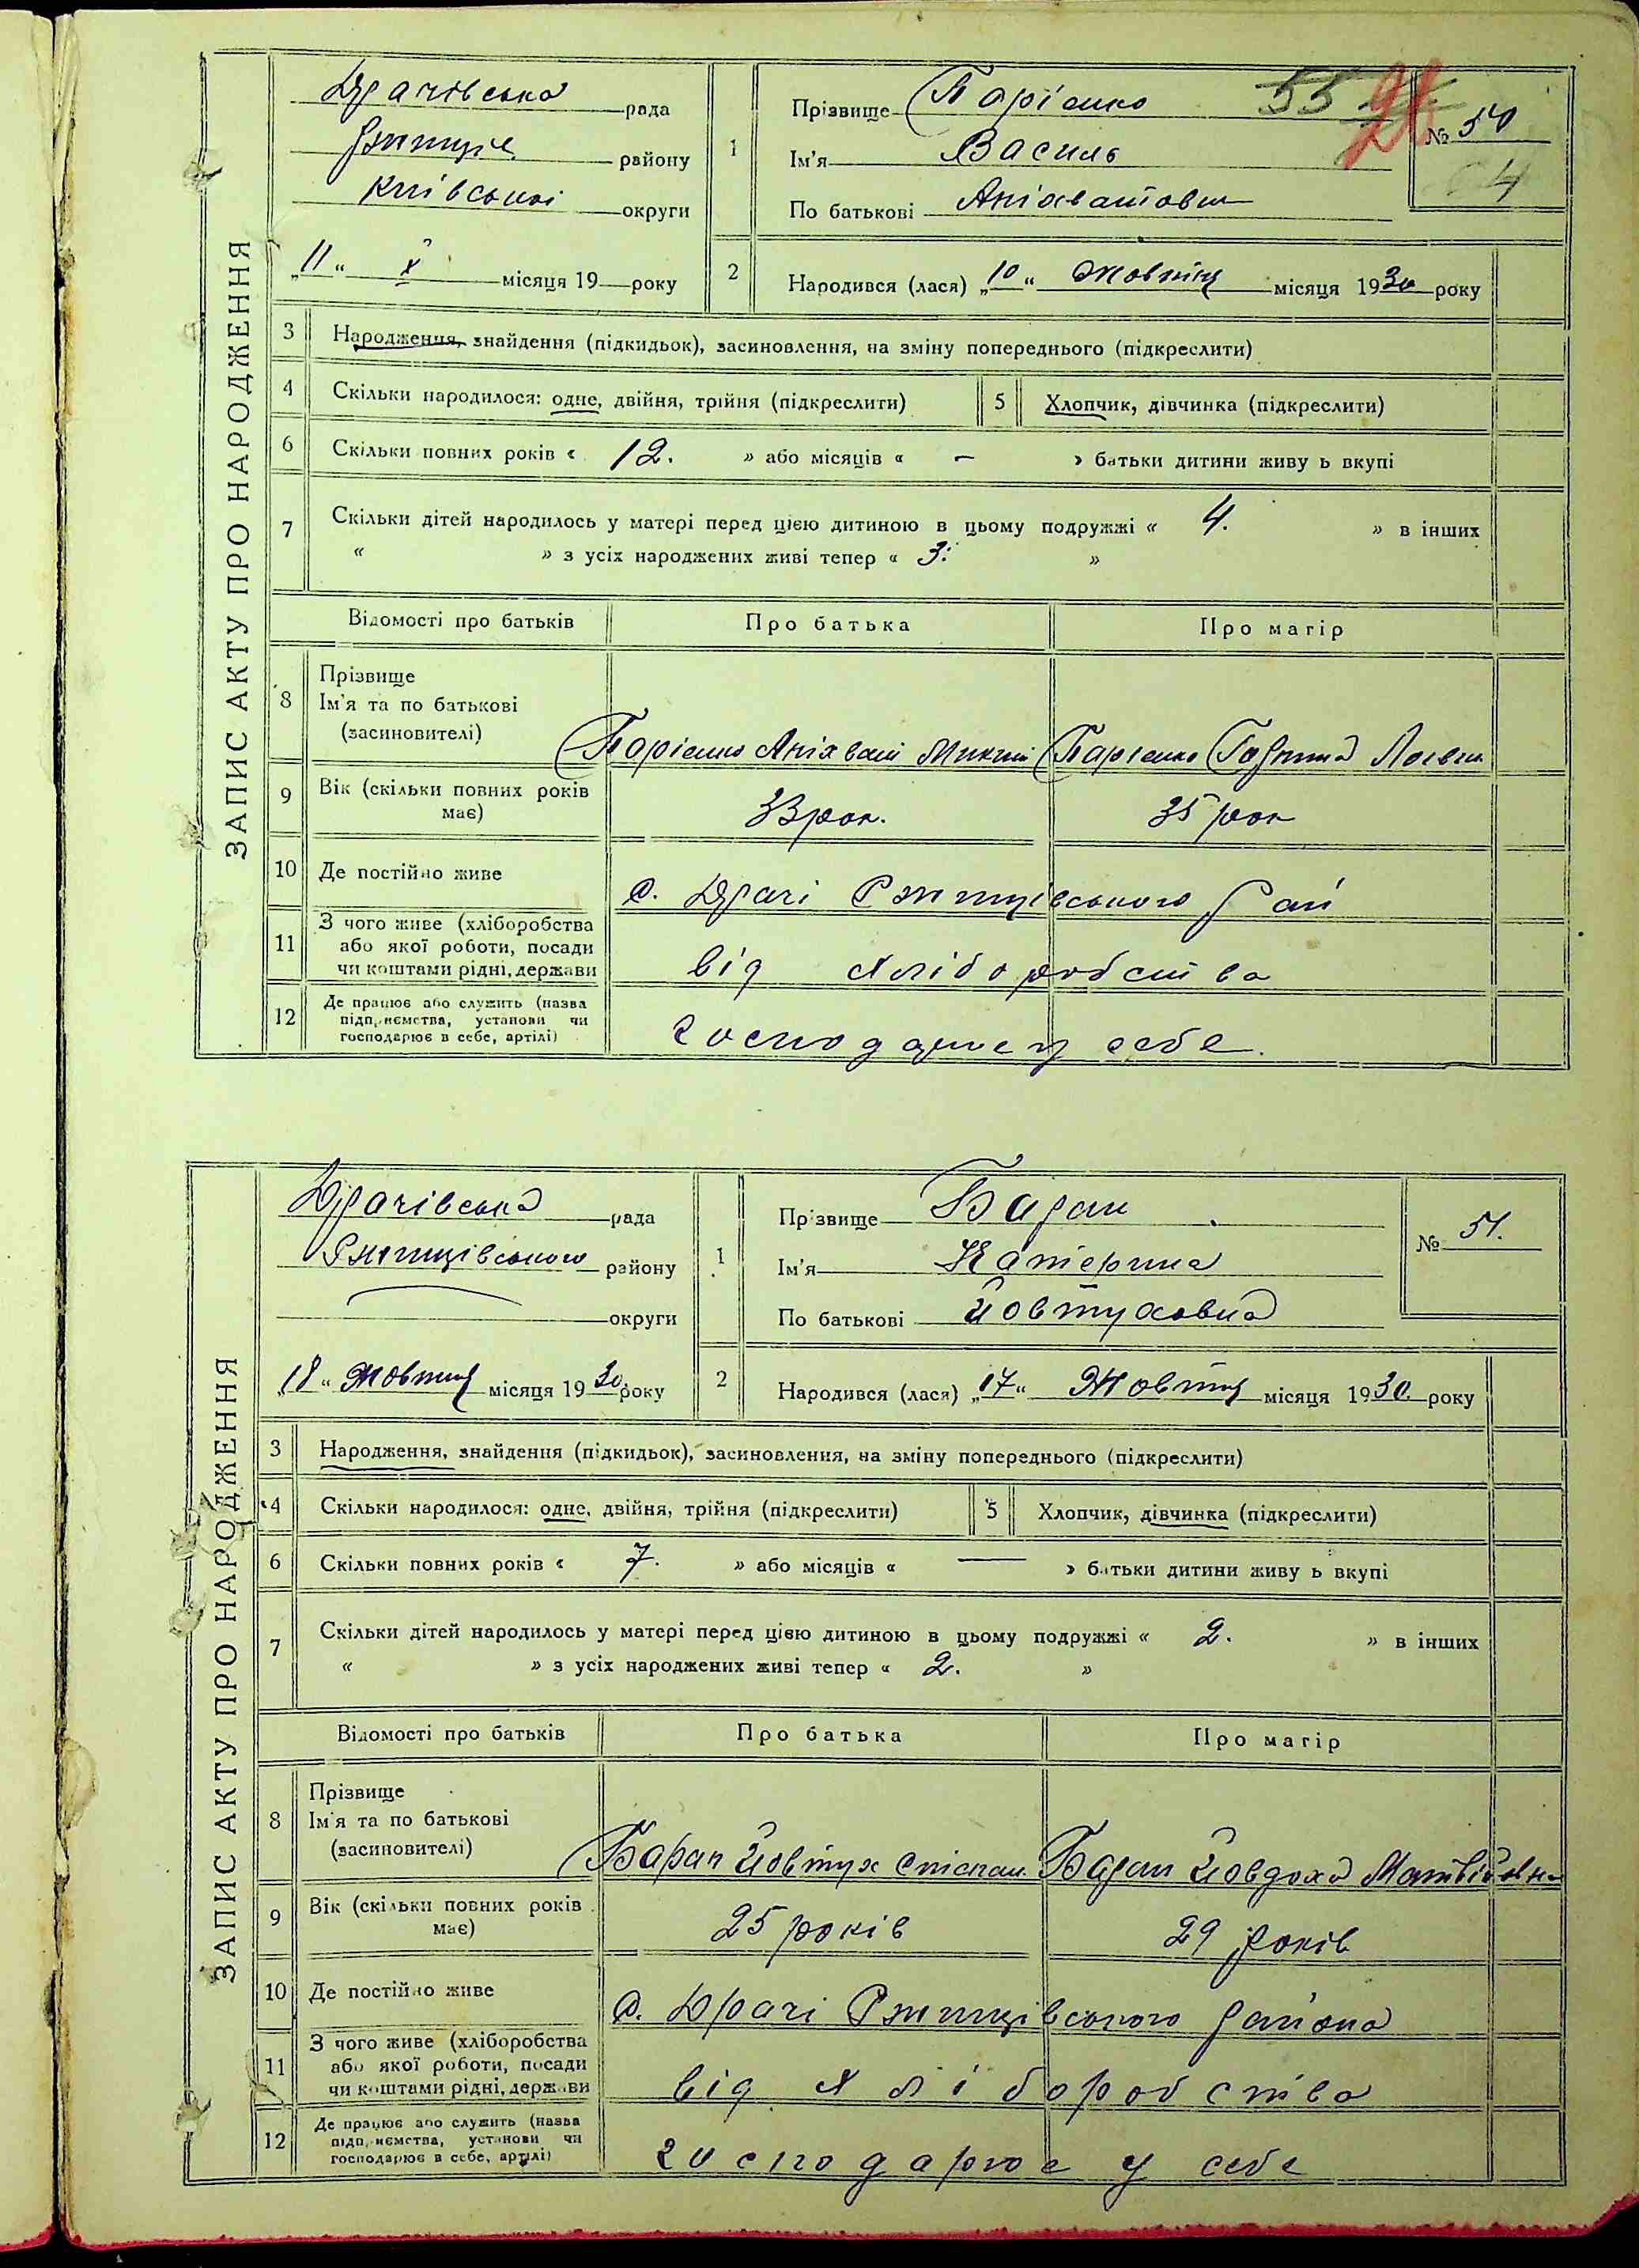 ЗАПИС АКТУ ПРО НАРОДЖЕННЯ
Драчівська рада
району
Київської округи
„11“ X місяця 19 року
1
Прізвище Царієнко
Ім'я Василь
По батькові
55
№ 50
4
2
Народився (лася) „10“ Жовтня місяця 1930 року
3 Народження, знайдення (підкидьок), засиновлення, на зміну попереднього (підкреслити)
4 Скільки народилося: одне, двійня, трійня (підкреслити) 5 Хлопчик, дівчинка (підкреслити)
6 Скільки повних років « 12. » або місяців « — » батьки дитини живу ь вкупі
7 Скільки дітей народилось у матері перед цією дитиною в цьому подружжі « 4. » в інших
« » з усіх народжених живі тепер « 3. »
Відомості про батьків Про батька Про матір
8 Прізвище
Ім'я та по батькові
(засиновителі)
9 Вік (скільки повних років має) 33 рок. 35 рок
10 Де постійно живе с. Драчі Ржищівського Рай
11 З чого живе (хліборобства або якої роботи, посади чи коштами рідні, держави від хліборобства
12 Де працює або служить (назва підприємства, установи чи господарює в себе, артілі) господарює у себе.
ЗАПИС АКТУ ПРО НАРОДЖЕННЯ
Драчівська рада
Ржищівського району
округи
„18“ Жовтня місяця 1930 року
1
Прізвище Баран
Ім'я Катерина
По батькові Йовтуховна
№ 51.
2
Народився (лася) „17“ Жовтня місяця 1930. року
3 Народження, знайдення (підкидьок), засиновлення, на зміну попереднього (підкреслити)
4 Скільки народилося: одне, двійня, трійня (підкреслити) 5 Хлопчик, дівчинка (підкреслити)
6 Скільки повних років « 7. » або місяців « — » батьки дитини живу ь вкупі
7 Скільки дітей народилось у матері перед цією дитиною в цьому подружжі « 2. » в інших
« » з усіх народжених живі тепер « 2. »
Відомості про батьків Про батька Про матір
8 Прізвище
Ім'я та по батькові
(засиновителі)
Баран Йовтух Степан Баран Йовдоха Матвійовна
9 Вік (скільки повних років має) 25 років 29 років
10 Де постійно живе с. Драчі Ржищівського района
11 З чого живе (хліборобства або якої роботи, посади чи коштами рідні, держави від хліборобства
12 Де працює або служить (назва підприємства, установи чи господарює в себе, артілі) господарює у себе